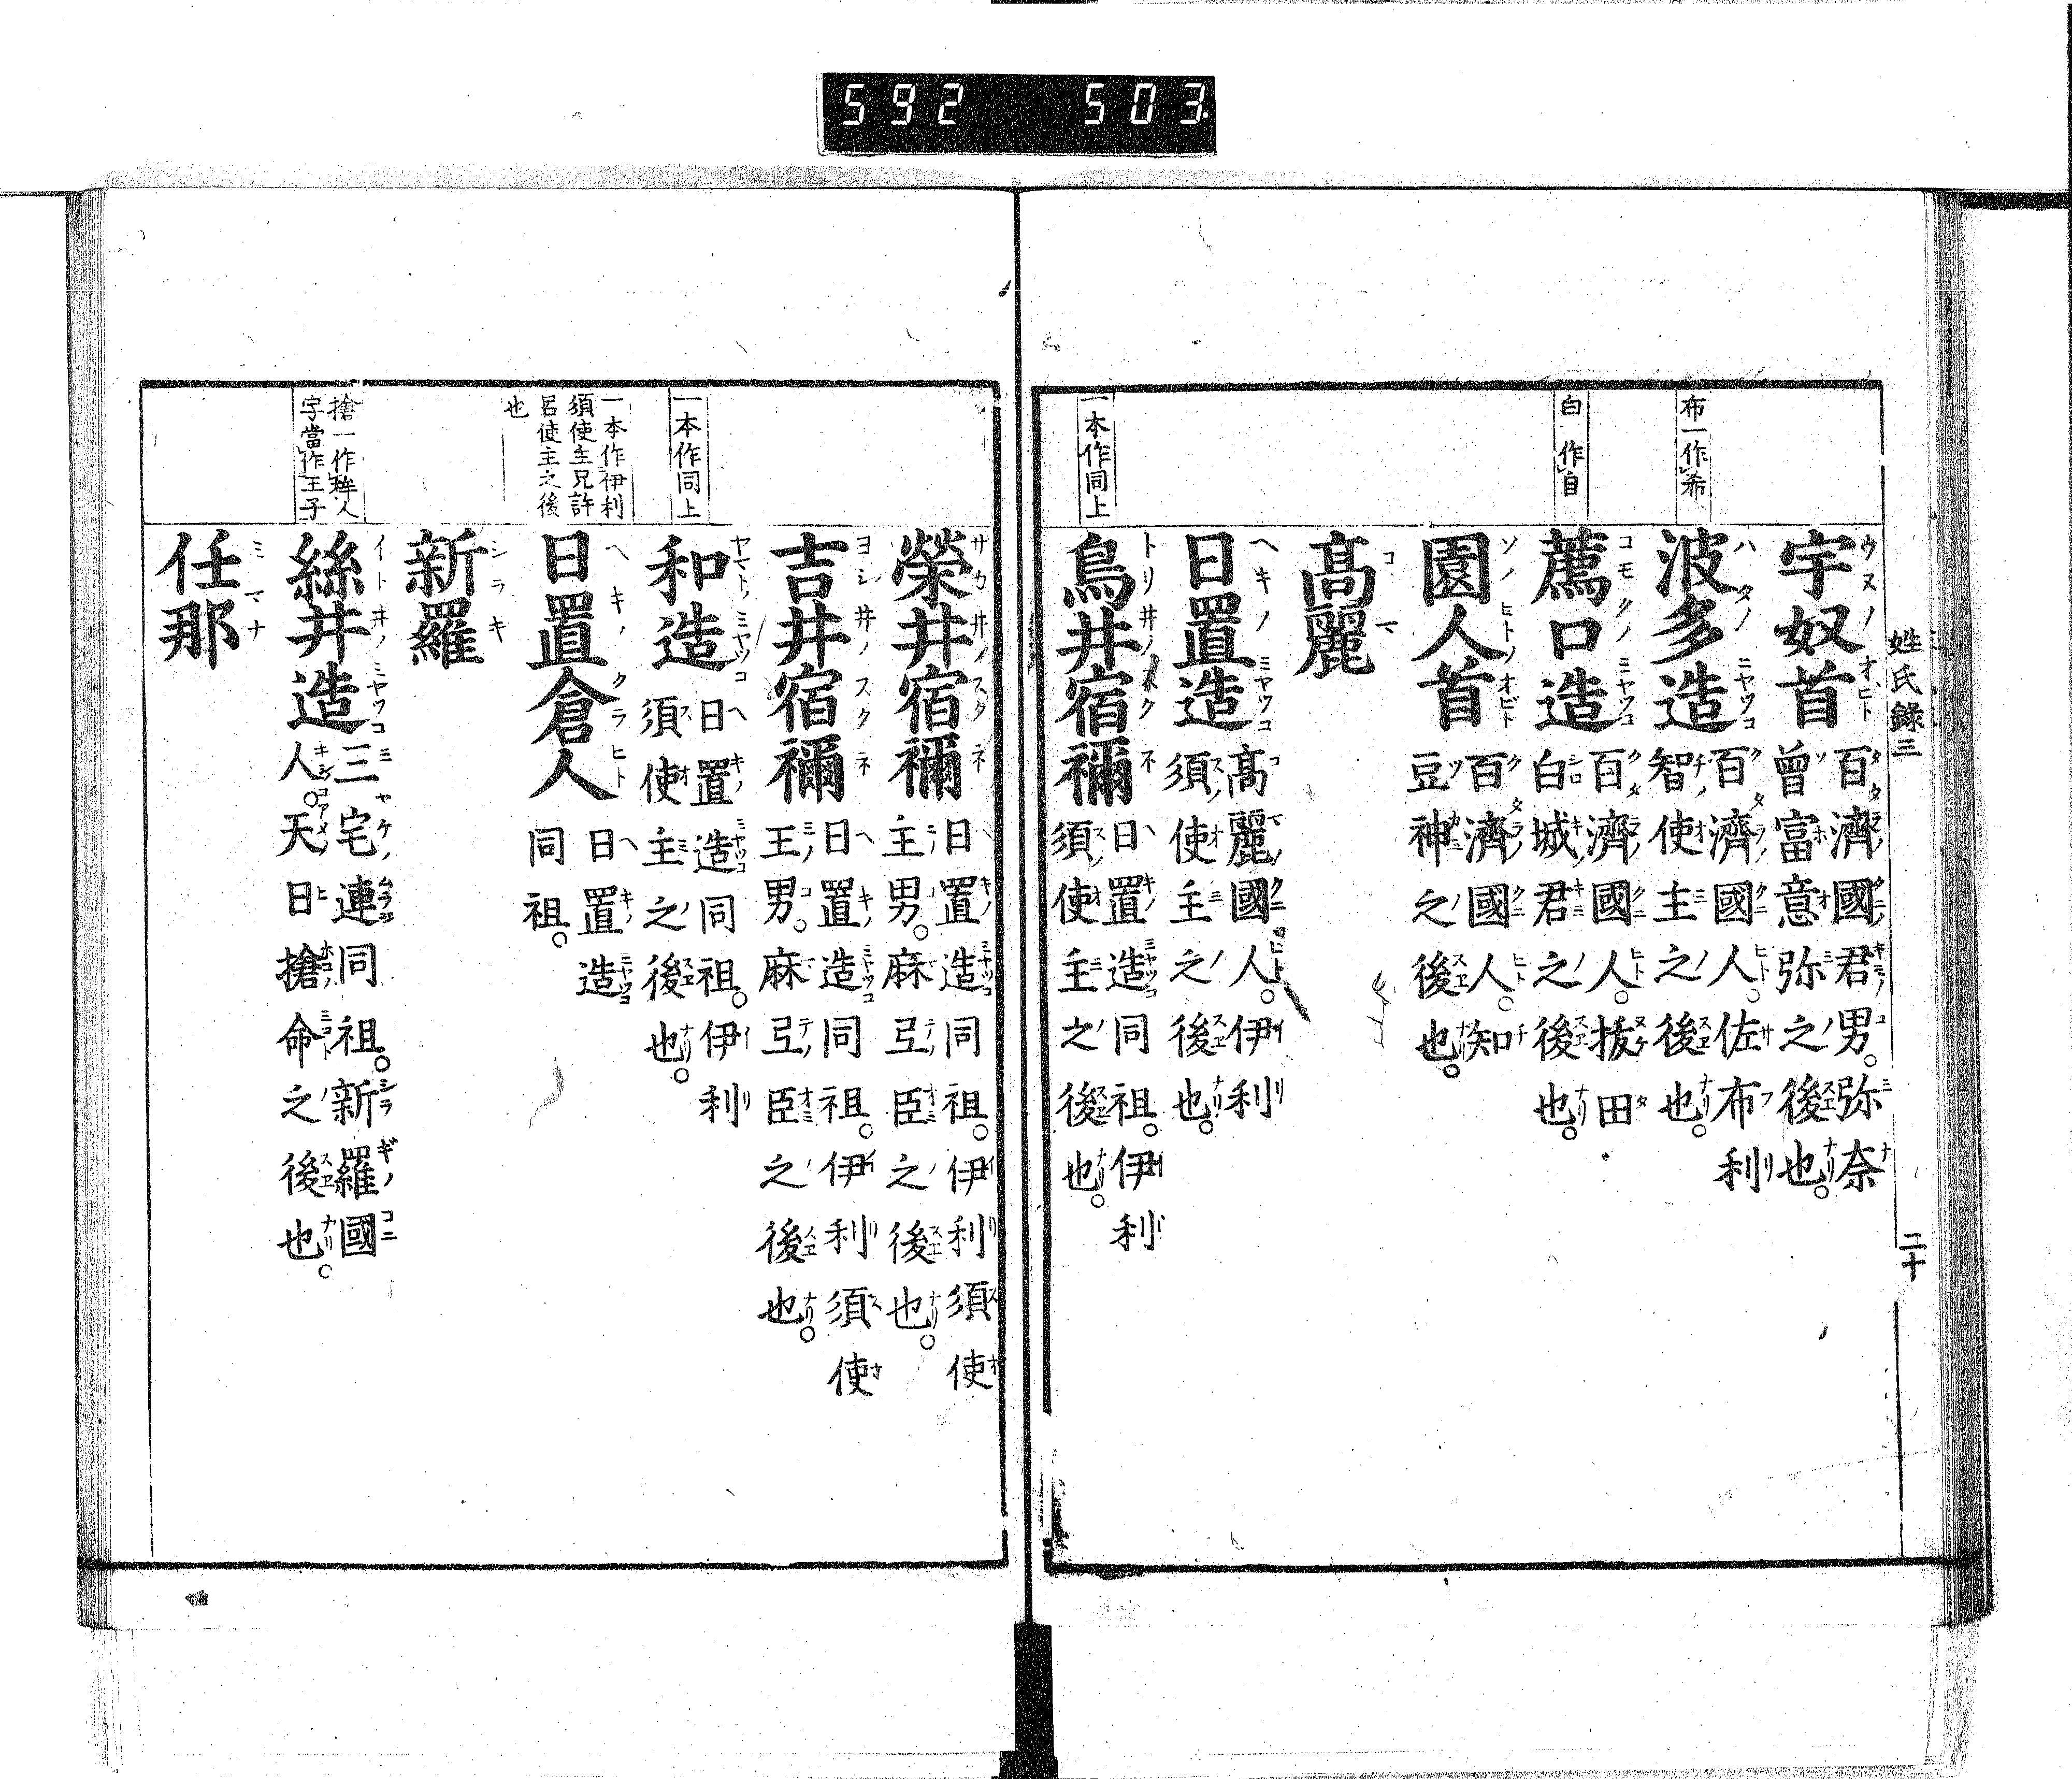 592 503
姓氏錄三
二十
布一作希
白 作自
一本作同上
宇奴首 百濟國君男。弥奈
曾富意弥之後也。
波多造 百濟國人。佐布利
智使主之後也。
薦口造 百濟國人。拔田
白城君之後也。
園人首 百濟國人。知
豆神之後也。
高麗
日置造 高麗國人。伊利
須使主之後也。
鳥井宿禰 日置造同祖。伊利
須使主之後也。
一本作同上
一本作伊利
須使主兄許
呂使主之後
也
搶一作桙人
字當作王子
榮井宿禰 日置造同祖。伊利須使
主男。麻弖臣之後也。
吉井宿禰 日置造同祖。伊利須使
主男。麻弖臣之後也。
和造 日置造同祖。伊利
須使主之後也。
日置倉人 日置造
同祖。
新羅
絲井造 三宅連同祖。新羅國
人。天日搶命之後也。
任那